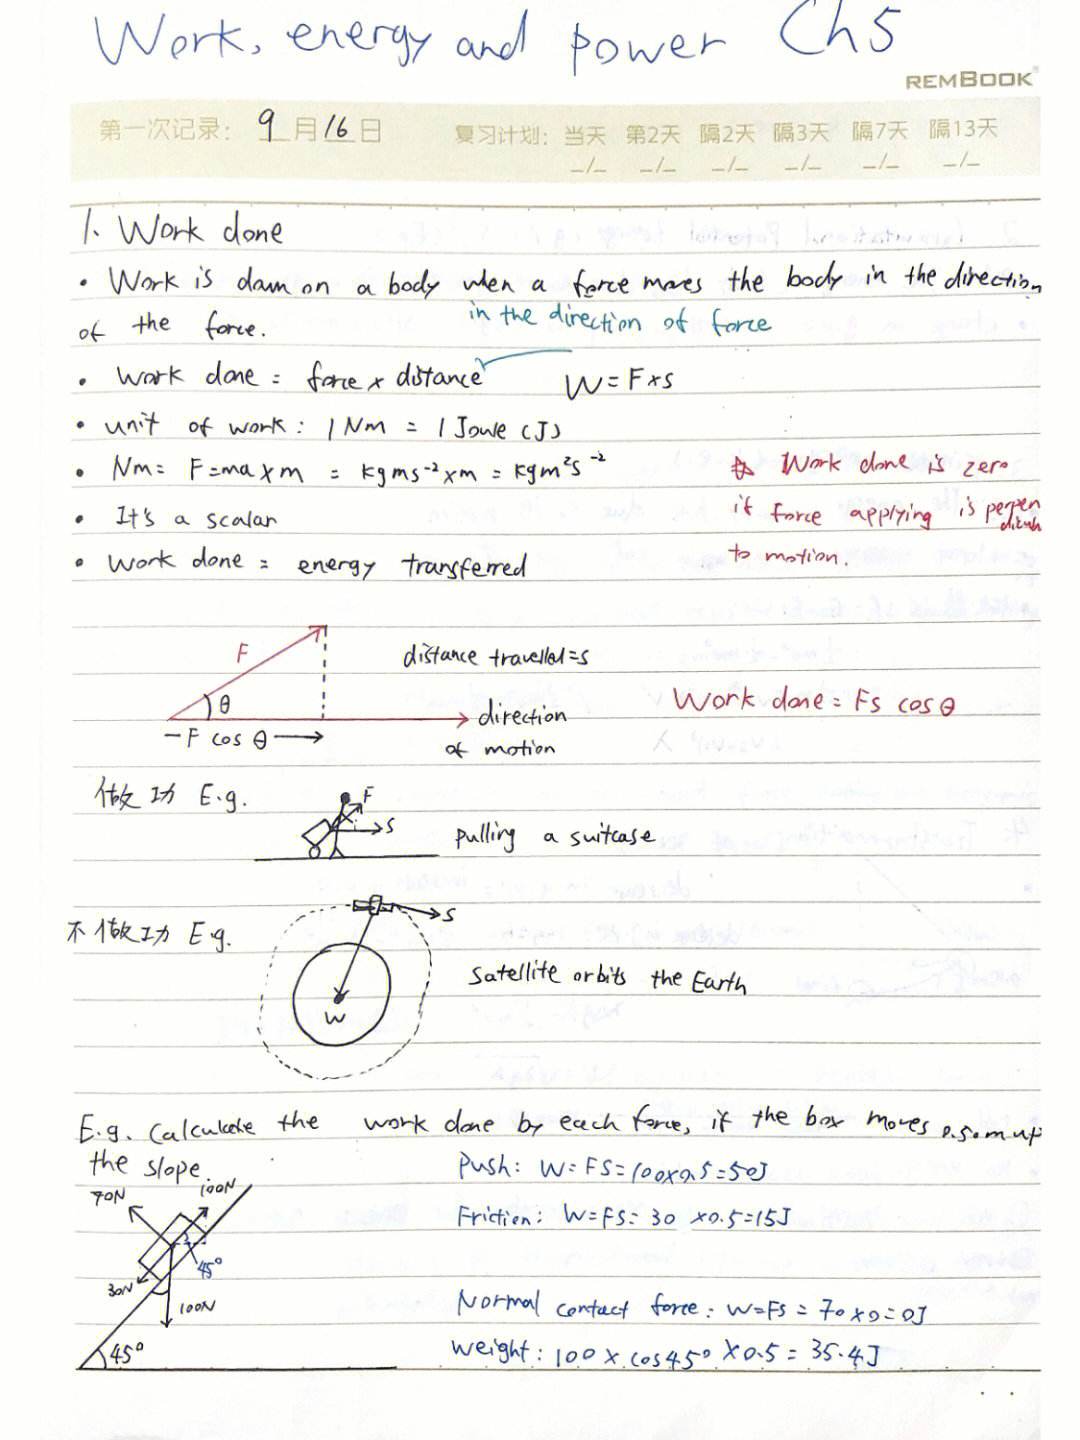 Work, energy and power Ch5
REMBOOK
第一次记录: 9月16日 复习计划: 当天 第2天 隔2天 隔3天 隔7天 隔13天
_/_ _/_ _/_ _/_ _/_ _/_
1. Work done
• Work is dam on a body when a force moves the body in the direction
of the force.
in the direction of force
• Work done = force x distance W = F x s
• unit of work: 1 Nm = 1 Joule (J)
• Nm = F=ma x m = kgms⁻² x m = kgm²s⁻²
• It's a scalar
• Work done = energy transferred
Work done is zero
if force applying is perpen
to motion.
F
θ
distance travelled = s
direction
of motion
– F cos θ →
Work done = Fs cos θ
做功 E.g.
F
s
pulling a suitcase
不做功 E.g.
s
W
Satellite orbits the Earth
E.g. Calculate the work done by each force, if the box moves 0.50m up
the slope.
70N
100N
45°
30N
100N
45°
Push: W = FS = 100x0.5 = 50J
Friction: W=FS= 30 x0.5=15J
Normal contact force: W=Fs = 70 x 0 = 0J
Weight: 100 x cos45° x 0.5 = 35.4J